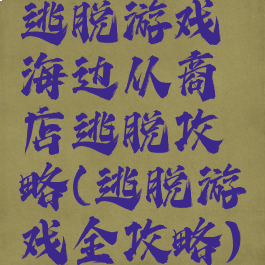 逃脱游戏
海边从商
店逃脱攻
略(逃脱游
戏全攻略)